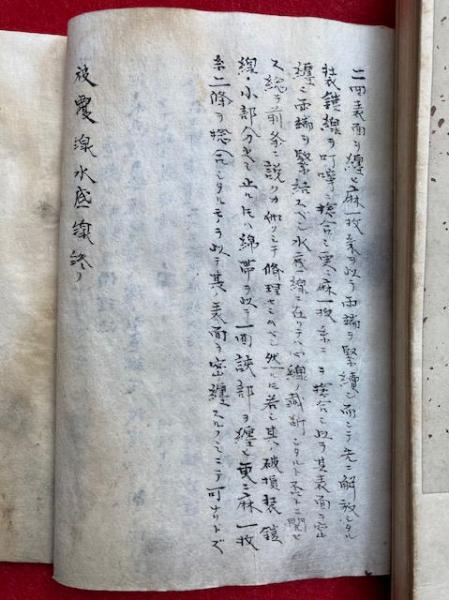 二回表面ヲ纏ヒ麻一枚糸ヲ以テ両端ヲ緊縛シ而シテ先ニ解放シタル
装鎧線ヲ叮嚀ニ捻合シ更ニ麻一枚糸二ヲ捻合シ以テ其表面ヲ密
纏シ両端ヲ緊結スベシ水底線ニ在リテハ線ノ截断シタルト否トニ関セ
ス総テ前条ニ説クカ如クシテ修理セシムベシ然レ𪜈若シ其ノ破損装鎧
線ノ小部分ニ止ル𪜈ハ綿帯ヲ以テ一回該部ヲ纏ヒ更ニ麻一枚
糸二条ヲ捻合シタルモノヲ以テ其ノ表面ヲ密纏スルノミニテ可ナリトズ
被覆線水底線終り